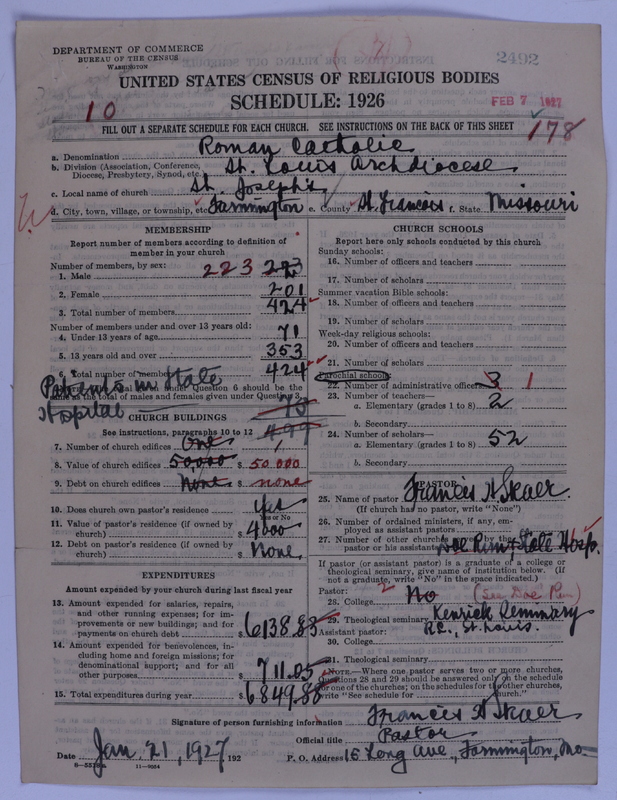 DEPARTMENT OF COMMERCE
BUREAU OF THE CENSUS
WASHINGTON
2492
UNITED STATES CENSUS OF RELIGIOUS BODIES
SCHEDULE: 1926
FEB 7 1927
10
FILL OUT A SEPARATE SCHEDULE FOR EACH CHURCH. SEE INSTRUCTIONS ON THE BACK OF THIS SHEET
178
a. Denomination Roman Catholic
b. Division (Association, Conference, Diocese, Presbytery, Synod, etc. St. Louis Archdiocese
c. Local name of church St. Joseph's
d. City, town, village, or township, etc Farmington e. County St. Francois f. State Missouri
MEMBERSHIP
Report number of members according to definition of member in your church
Number of members, by sex:
1. Male 223 223
2. Female 201
3. Total number of members 424
Number of members under and over 13 years old:
4. Under 13 years of age 71
5. 13 years old and over 353
6. Total number of members 424
Question 6 should be the same as the total of males and females given under Question 3.
Patients in State Hospital 75
499
CHURCH BUILDINGS
See instructions, paragraphs 10 to 12
7. Number of church edifices One 1
8. Value of church edifices 50,000 $ 50 000
9. Debt on church edifices None $ none
10. Does church own pastor's residence Yes
Yes or No
11. Value of pastor's residence (if owned by church) $ 4000
12. Debt on pastor's residence (if owned by church) $ None
EXPENDITURES
Amount expended by your church during last fiscal year
13. Amount expended for salaries, repairs, and other running expenses; for improvements or new buildings; and for payments on church debt $ 6138.83
14. Amount expended for benevolences, including home and foreign missions; for denominational support; and for all other purposes $ 711.05
15. Total expenditures during year $ 6849.88
CHURCH SCHOOLS
Report here only schools conducted by this church
Sunday schools:
16. Number of officers and teachers
17. Number of scholars
Summer vacation Bible schools:
18. Number of officers and teachers
19. Number of scholars
Week-day religious schools:
20. Number of officers and teachers
21. Number of scholars
Parochial schools:
22. Number of administrative officers 3 1
23. Number of teachers—
a. Elementary (grades 1 to 8) 2
b. Secondary
24. Number of scholars—
a. Elementary (grades 1 to 8) 52
b. Secondary
PASTOR
25. Name of pastor Francis H Skaer.
(If church has no pastor, write "None")
26. Number of ordained ministers, if any, employed as assistant pastors
27. Number of other churches served by the pastor or his assistants Doe Run & State Hosp.
If pastor (or assistant pastor) is a graduate of a college or theological seminary, give name of institution below. (If not a graduate, write "No" in the space indicated.)
Pastor:
28. College No (See Doe Run)
29. Theological seminary Kenrick Seminary
Assistant pastor: R.C., St. Louis.
30. College
31. Theological seminary
NOTE.—Where one pastor serves two or more churches, Questions 28 and 29 should be answered only on the schedule for one of the churches; on the schedules for the other churches, write "See schedule for church."
Signature of person furnishing information Francis H Skaer
Official title Pastor
Date Jan. 21, 1927 192
P. O. Address 15 Long Ave., Farmington, Mo
11—9664